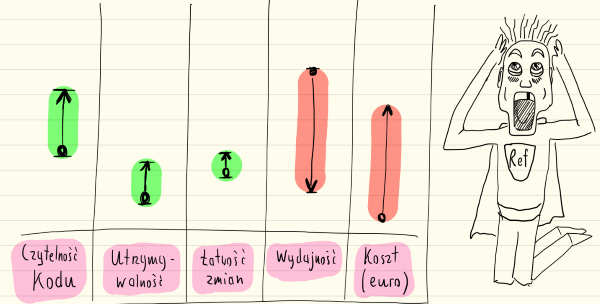 Czytelność
Kodu
Utrzymy-
walność
Łatwość
zmian
Wydajność
Koszt
(euro)
Ref